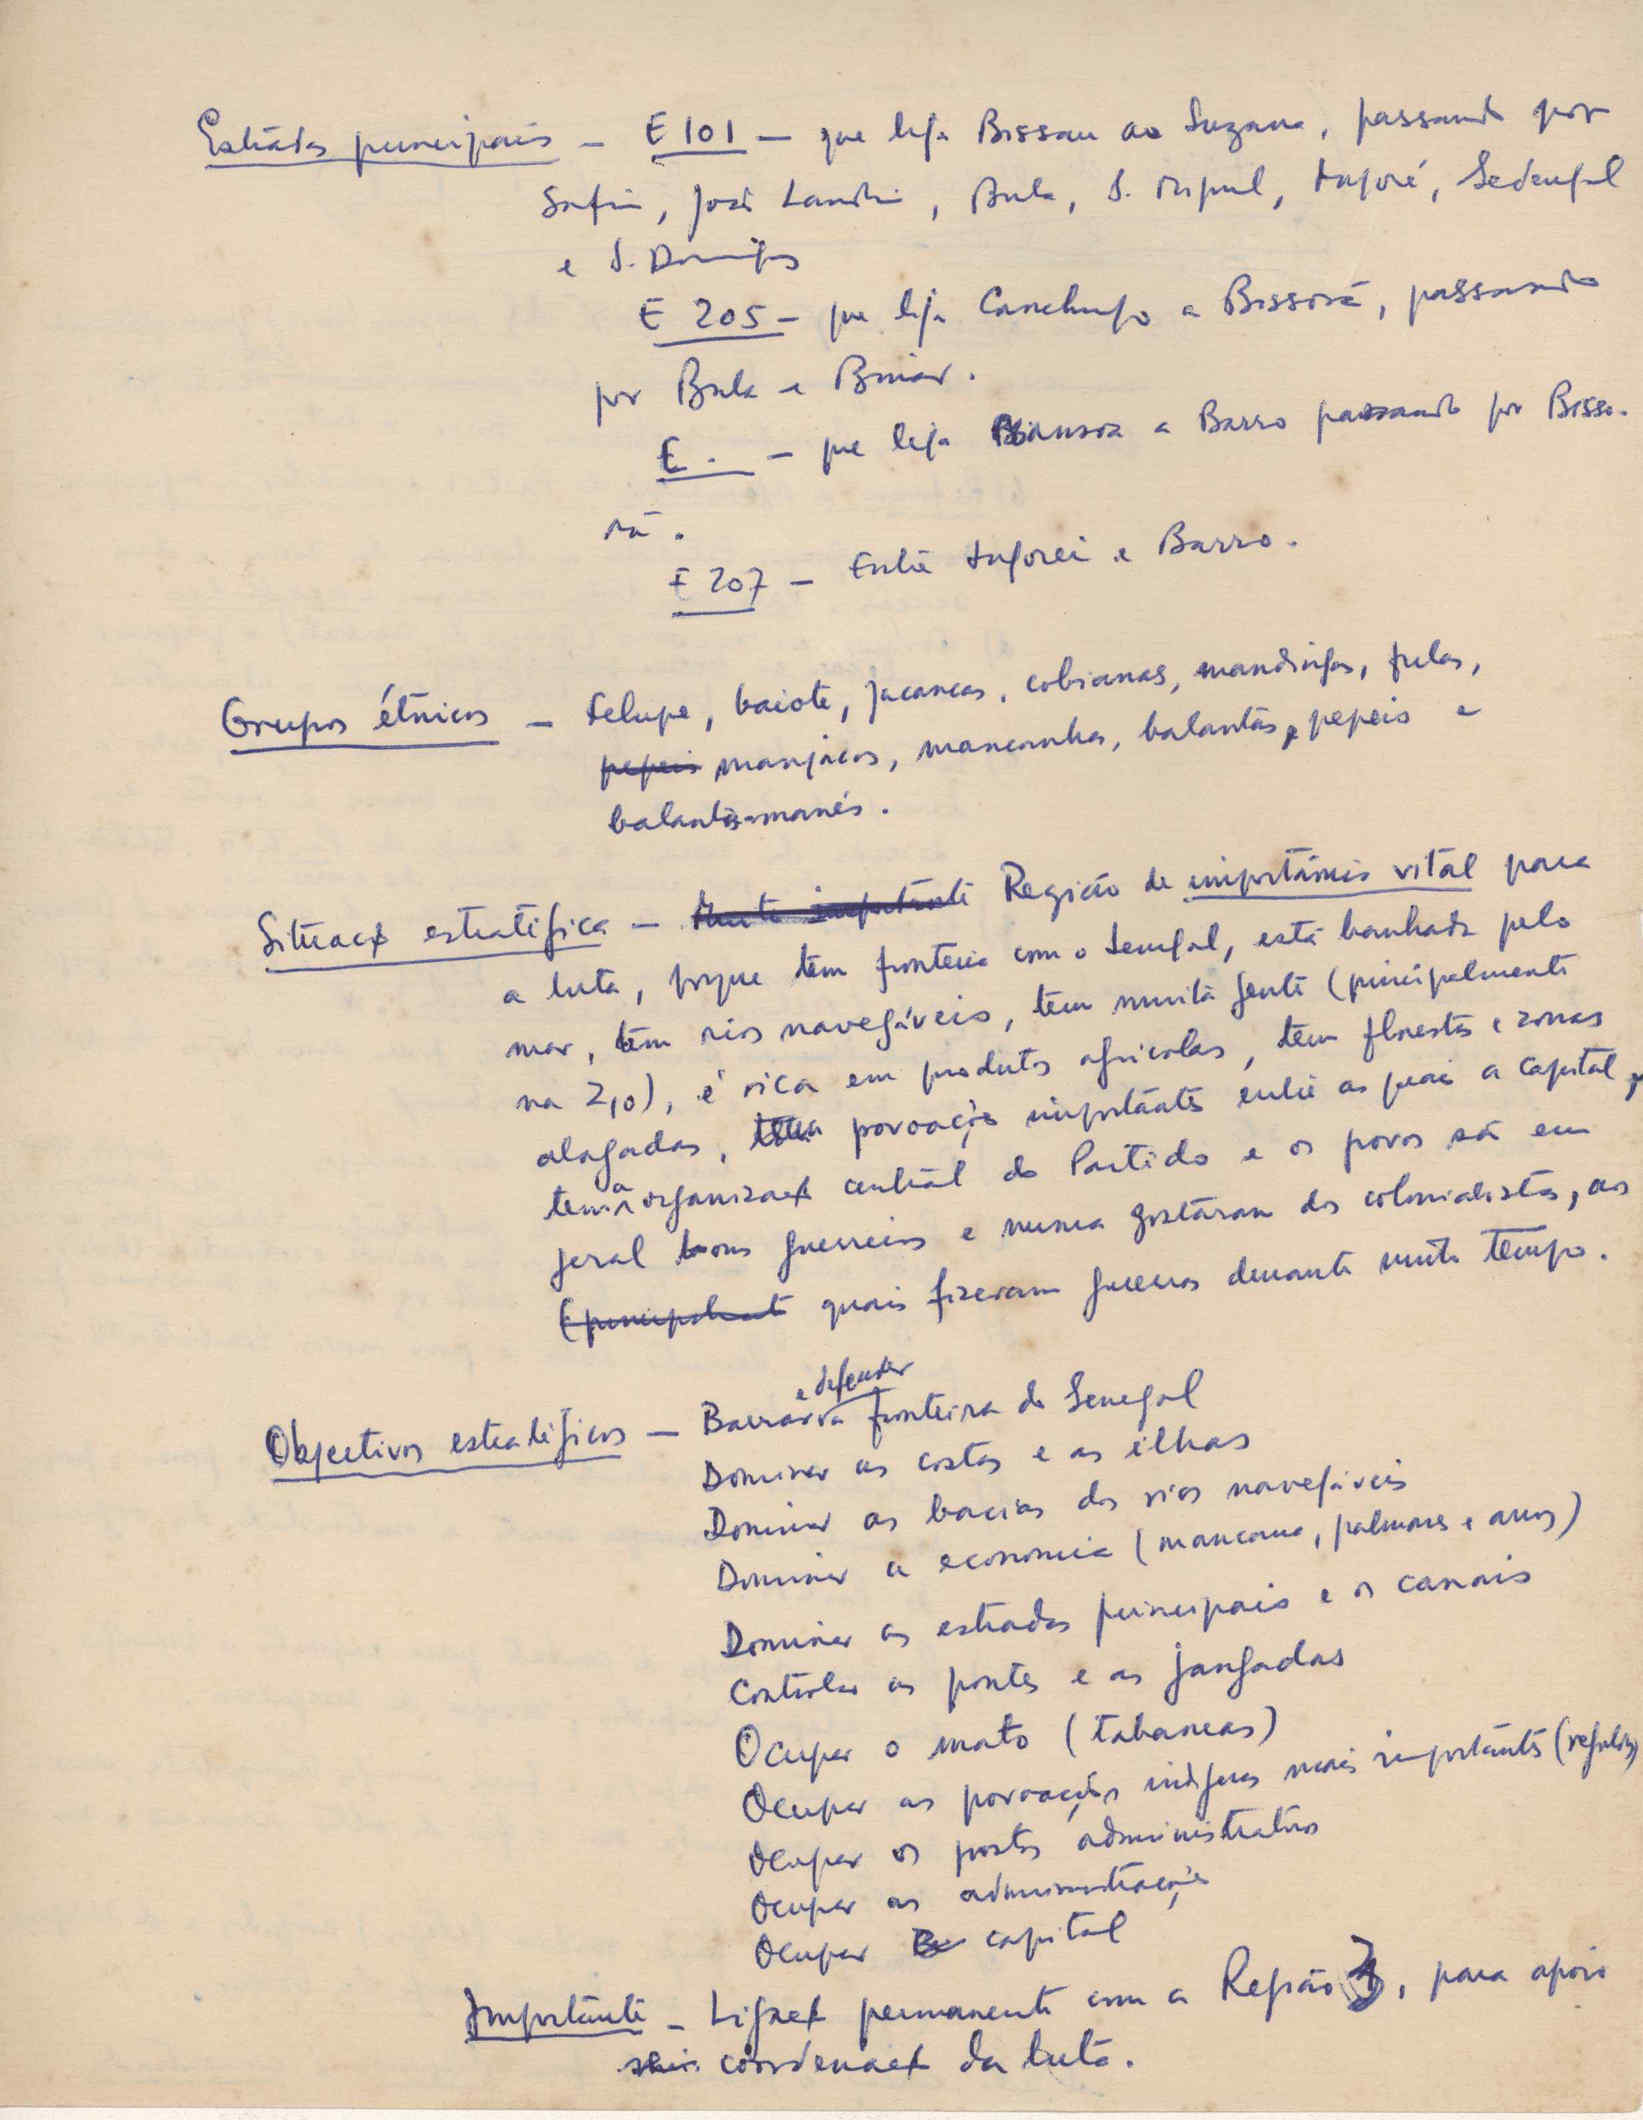 Estradas principais — E 101 — que liga Bissau ao Suzana, passando por
Safim, João Landim, Bula, S. Miguel, Ingoré, Sedengal
e S. Domingos
E 205 — que liga Canchungo a Bissorã, passando
por Bula e Binar.
E. — que liga Bansoa a Barro passando por Bisso-
rã.
E 207 — Entre Ingorei e Barro.
Grupos étnicos — Felupe, baiote, jacancas, cobianas, mandingas, fulas,
pepeis manjacos, mancanhas, balantas, pepeis e
balantas-manés.
Situaç estratégica — Muito importante Região de importância vital para
a luta, porque tem fronteira com o Senegal, está banhada pelo
mar, tem rios navegáveis, tem muita gente (principalmente
na Z10), é rica em produtos agricolas, tem florestas e zonas
alagadas, tem povoações importantes entre as quais a capital,
tem a organizaç central do Partido e os povos são em
geral bons guerreiros e nunca gostaram dos colonialistas, aos
(principalmente quais fizeram guerras durante muito tempo.
Objectivos estratégicos — Barrar e defender a fronteira do Senegal
Dominar as costas e as ilhas
Dominar as bacias dos rios navegáveis
Dominar a economia (mancarra, palmares e arroz)
Dominar as estradas principais e os canais
Controlar as pontes e as jangadas
Ocupar o mato (tabancas)
Ocupar as povoações indígenas mais importantes (regulos)
Ocupar os postos administrativos
Ocupar as administrações
Ocupar capital
Importante — Ligaç permanente com a Região 3, para apoio
coordenaç da luta.